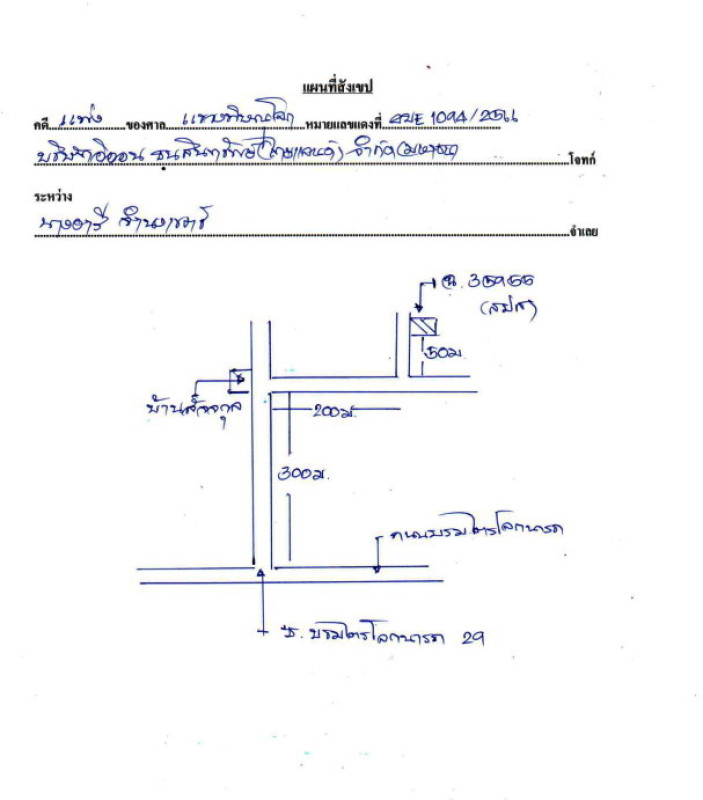 แผนที่สังเขป
คดี แพ่ง ของศาล แขวงพิษณุโลก หมายเลขแดงที่ 1094/2566
บริษัท อิออน ธนสินทรัพย์ (ไทยแลนด์) จำกัด (มหาชน) โจทก์
ระหว่าง
นางอารี จำเลย
ฉ. 35966
50ม.
บ้าน
200ม.
300ม.
ถนนบรมไตรโลกนารถ
ซ. บรมไตรโลกนารถ 29